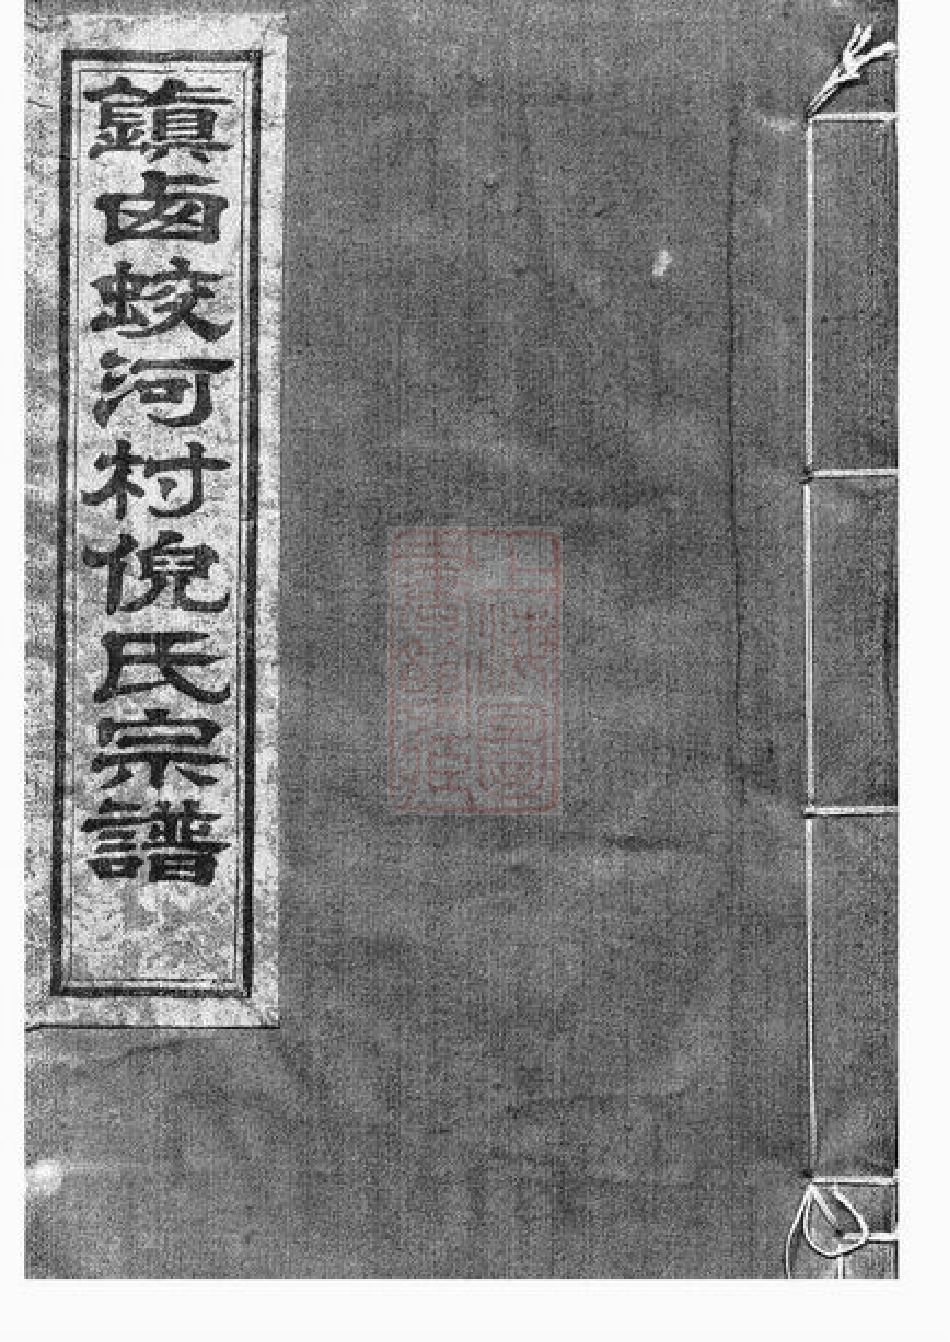 鎮卥蛟河村倪氏宗譜
上海圖書館藏